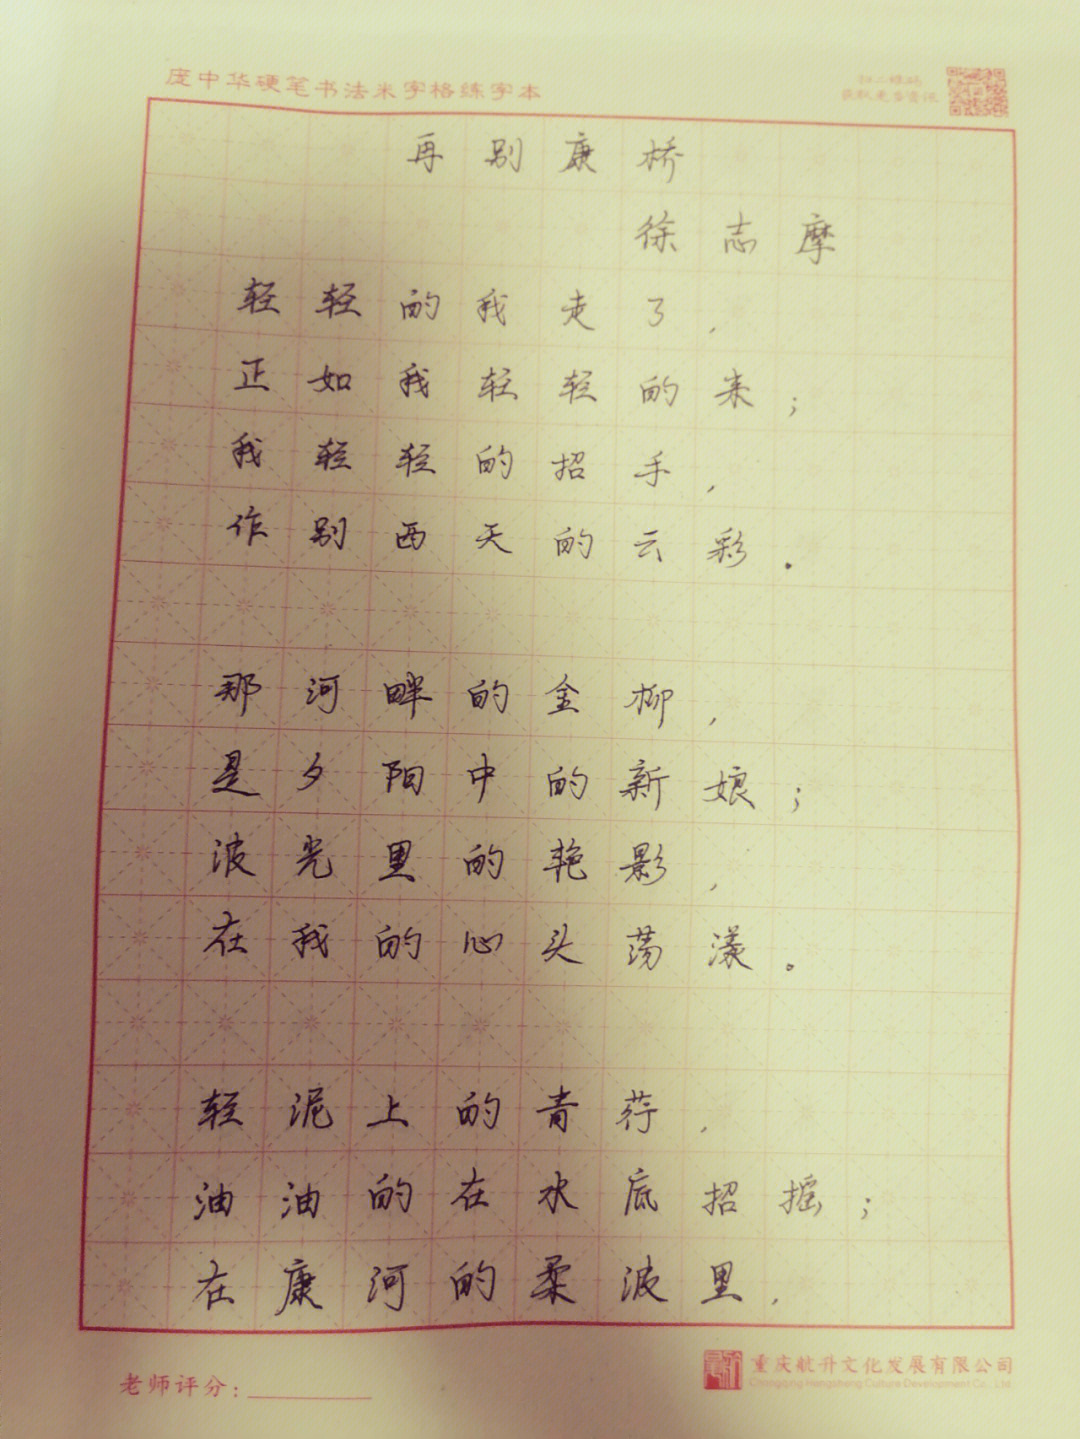 庞中华硬笔书法米字格练字本
扫二维码
获取更多资讯
再别康桥
徐志摩
轻轻的我走了,
正如我轻轻的来;
我轻轻的招手,
作别西天的云彩.
那河畔的金柳,
是夕阳中的新娘;
波光里的艳影,
在我的心头荡漾。
轻泥上的青荇,
油油的在水底招摇;
在康河的柔波里,
老师评分:
重庆航升文化发展有限公司
Chongqing Hangsheng Culture Development Co., Ltd.